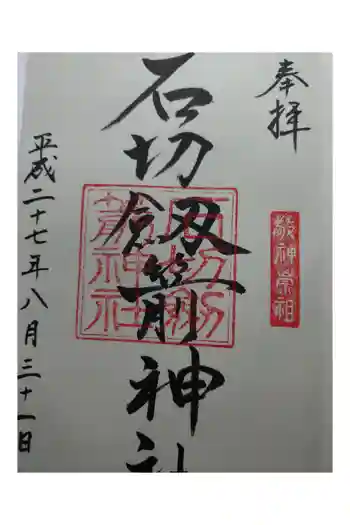 奉拝
敬神崇祖
石切劔箭神社
石切劔箭神社
平成二十七年八月三十一日